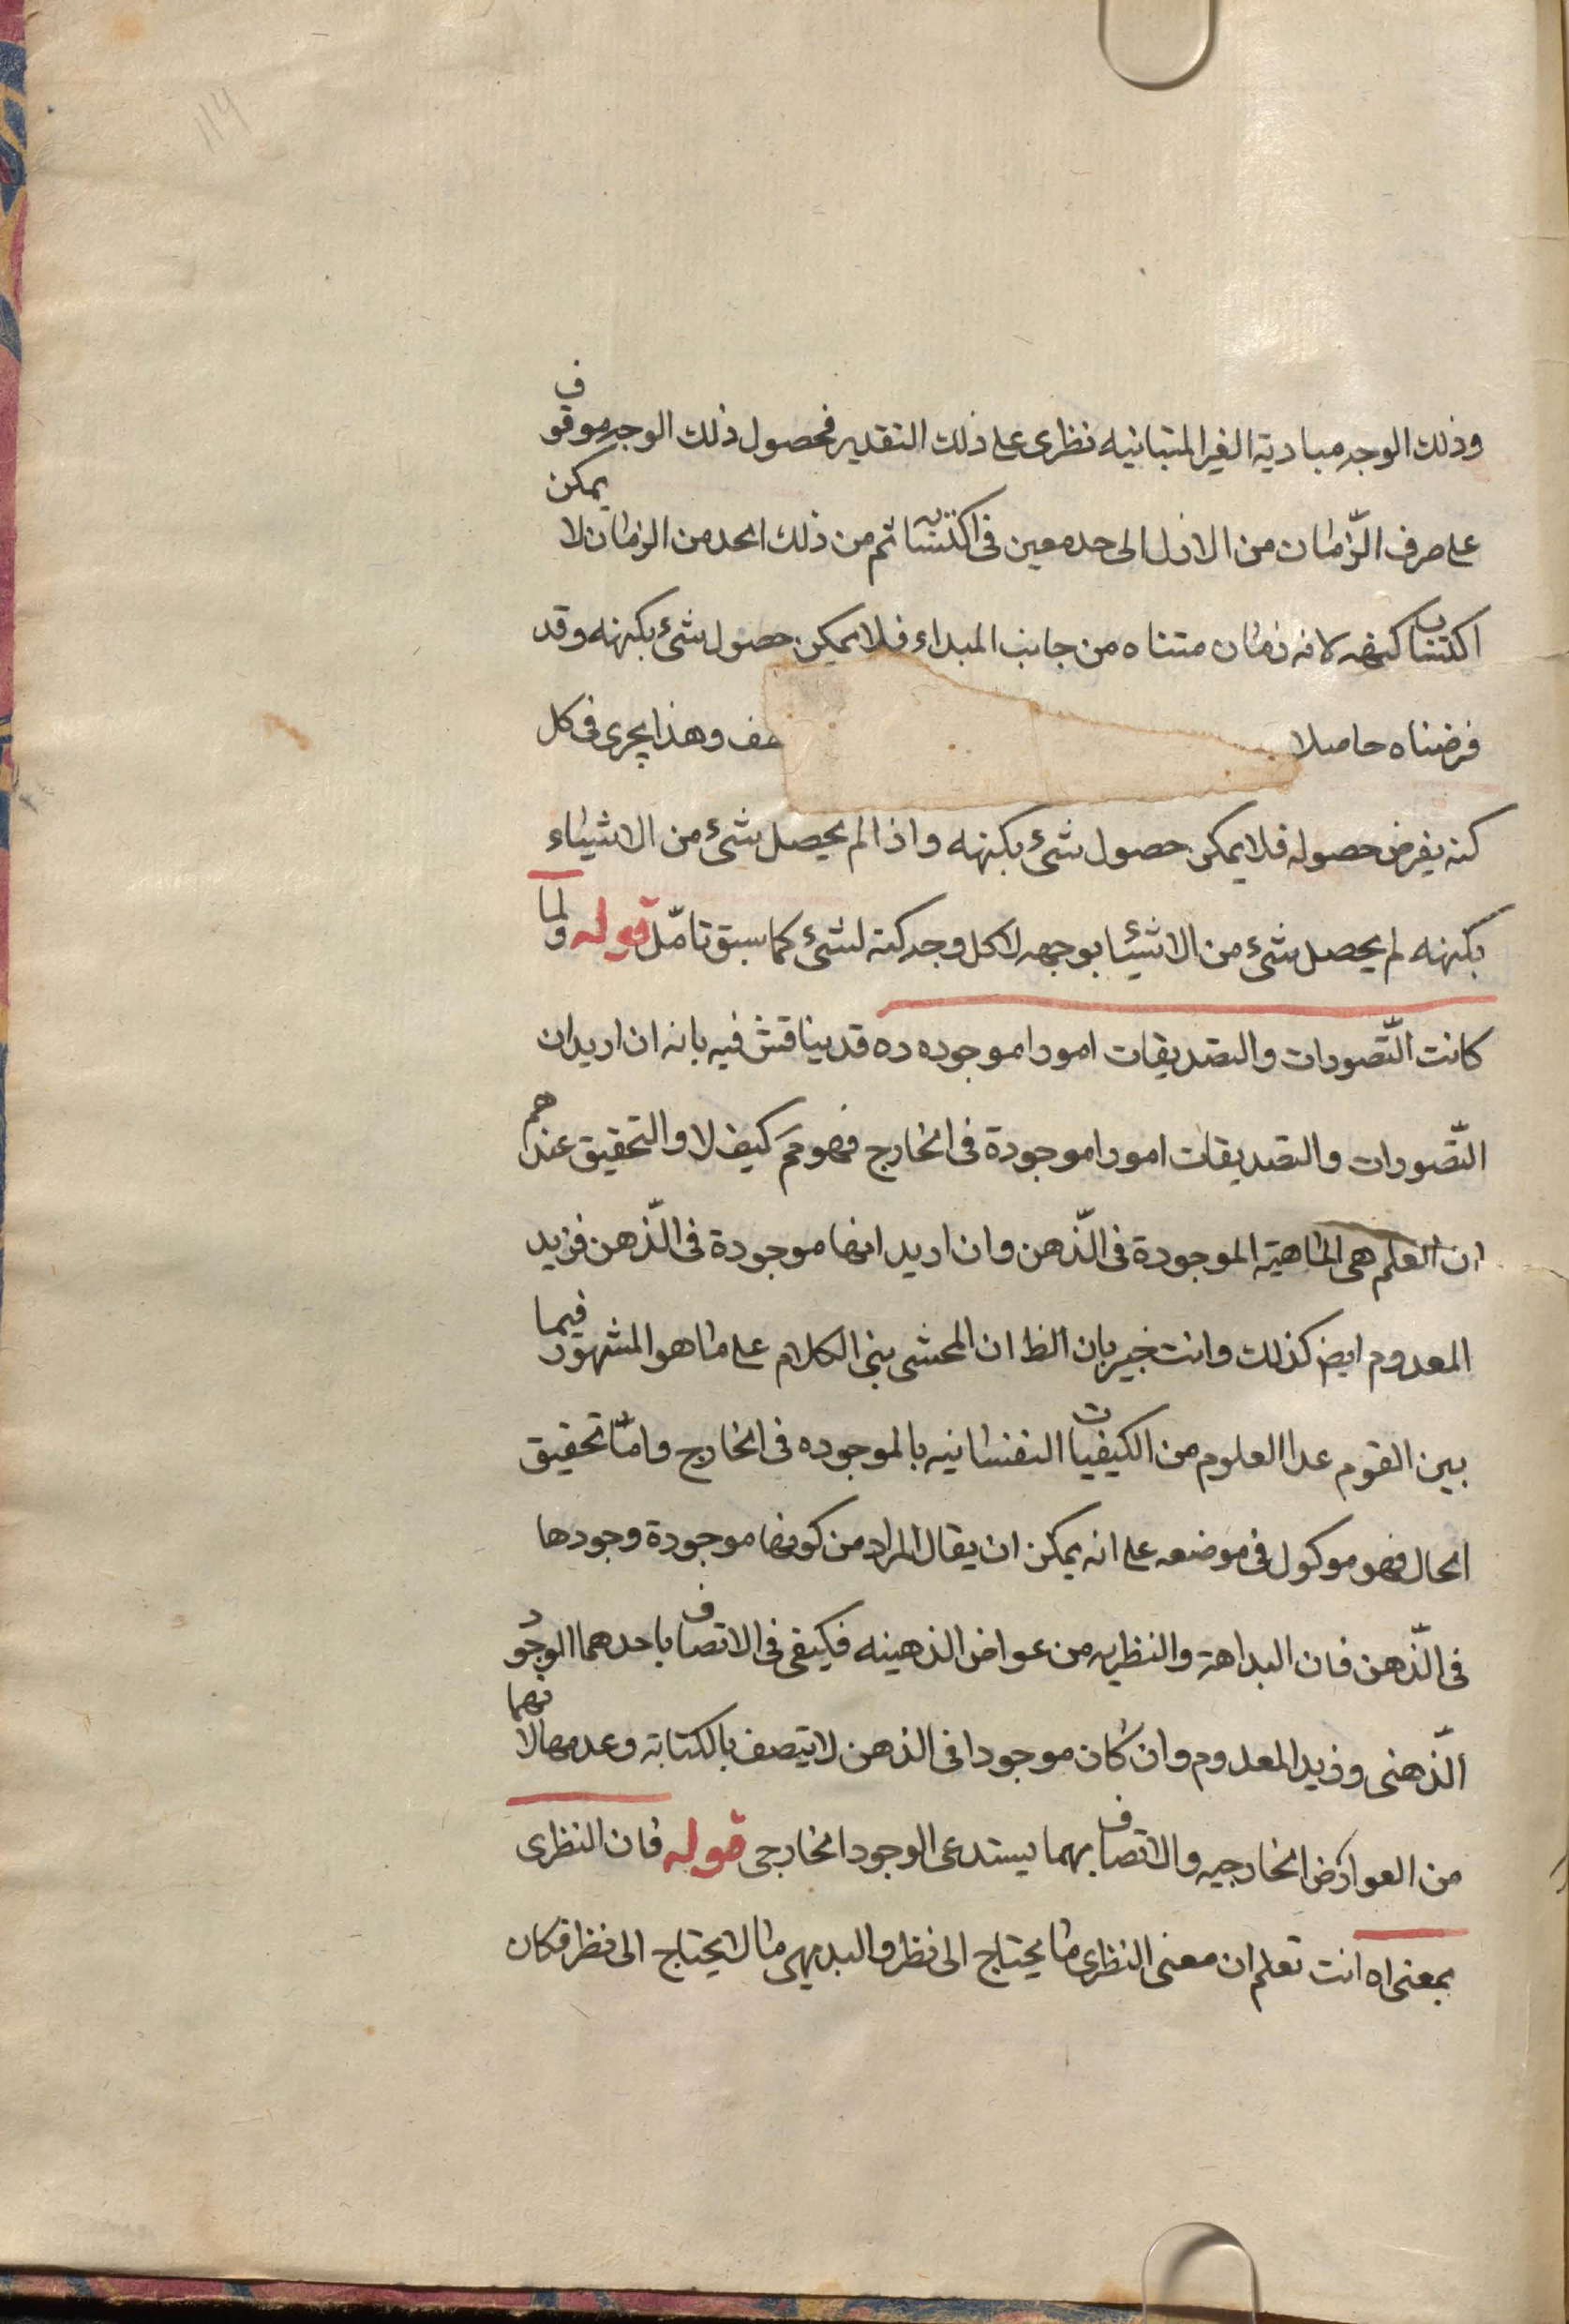 وذلك الوجه مباديه الغير المتبانيه نظرى على ذلك التقدير فحصول ذلك الوجه موقوف
على صرف الزّمان من الازل الى حد معين فى اكتسابه ثم من ذلك الحد من الزمان لا يمكن
اكتساب كنهه لانه زمان متناه من جانب المبداء فلا يمكن حصول شئ بكنهه وقد
فرضناه حاصلا هف وهذا يجرى فى كل
كنه يفرض حصوله فلا يمكن حصول شئ بكنهه واذا لم يحصل شئ من الاشياء
بكنهه لم يحصل شئ من الاشيئا بوجهه لا كل وجه كنه لشئ كما سبق تامّل قوله ولما
كانت التّصورات والتصديقات امورا موجوده ده قد يناقش فيه بانه ان اريد ان
التّصورات والتصديقات امورا موجودة فى الخارج فهو مم كيف لا والتحقيق عندهم
ان العلم هى الماهية الموجودة فى الذّهن وان اريد انها موجودة فى الذّهن فزيد
المعدوم ايض كذلك وانت خبير بان الظ ان المحشى بنى الكلام على ما هو المشهور فيما
بين القوم عدا العلوم من الكيفيات النفسانيه بالموجوده فى الخارج وامّا تحقيق
الحال فهو موكول فى موضعه على انه يمكن ان يقال المراد من كونها موجودة وجودها
فى الذّهن فان البداهة والنظريه من عواض الذهينه فكيفى فى الاتصاف باحدهما الوجود
الذّهنى وزيد المعدوم وان كان موجودا فى الذهن لا يتصف بالكتابة وعدمها لانهما
من العوارض الخارجيه والاتصاف بهما يستدعى الوجود الخارجى قوله فان النظرى
بمعنى اه انت تعلم ان معنى النظرى ما يحتاج الى نظر والبديهى ما لا يحتاج الى نظر فكان